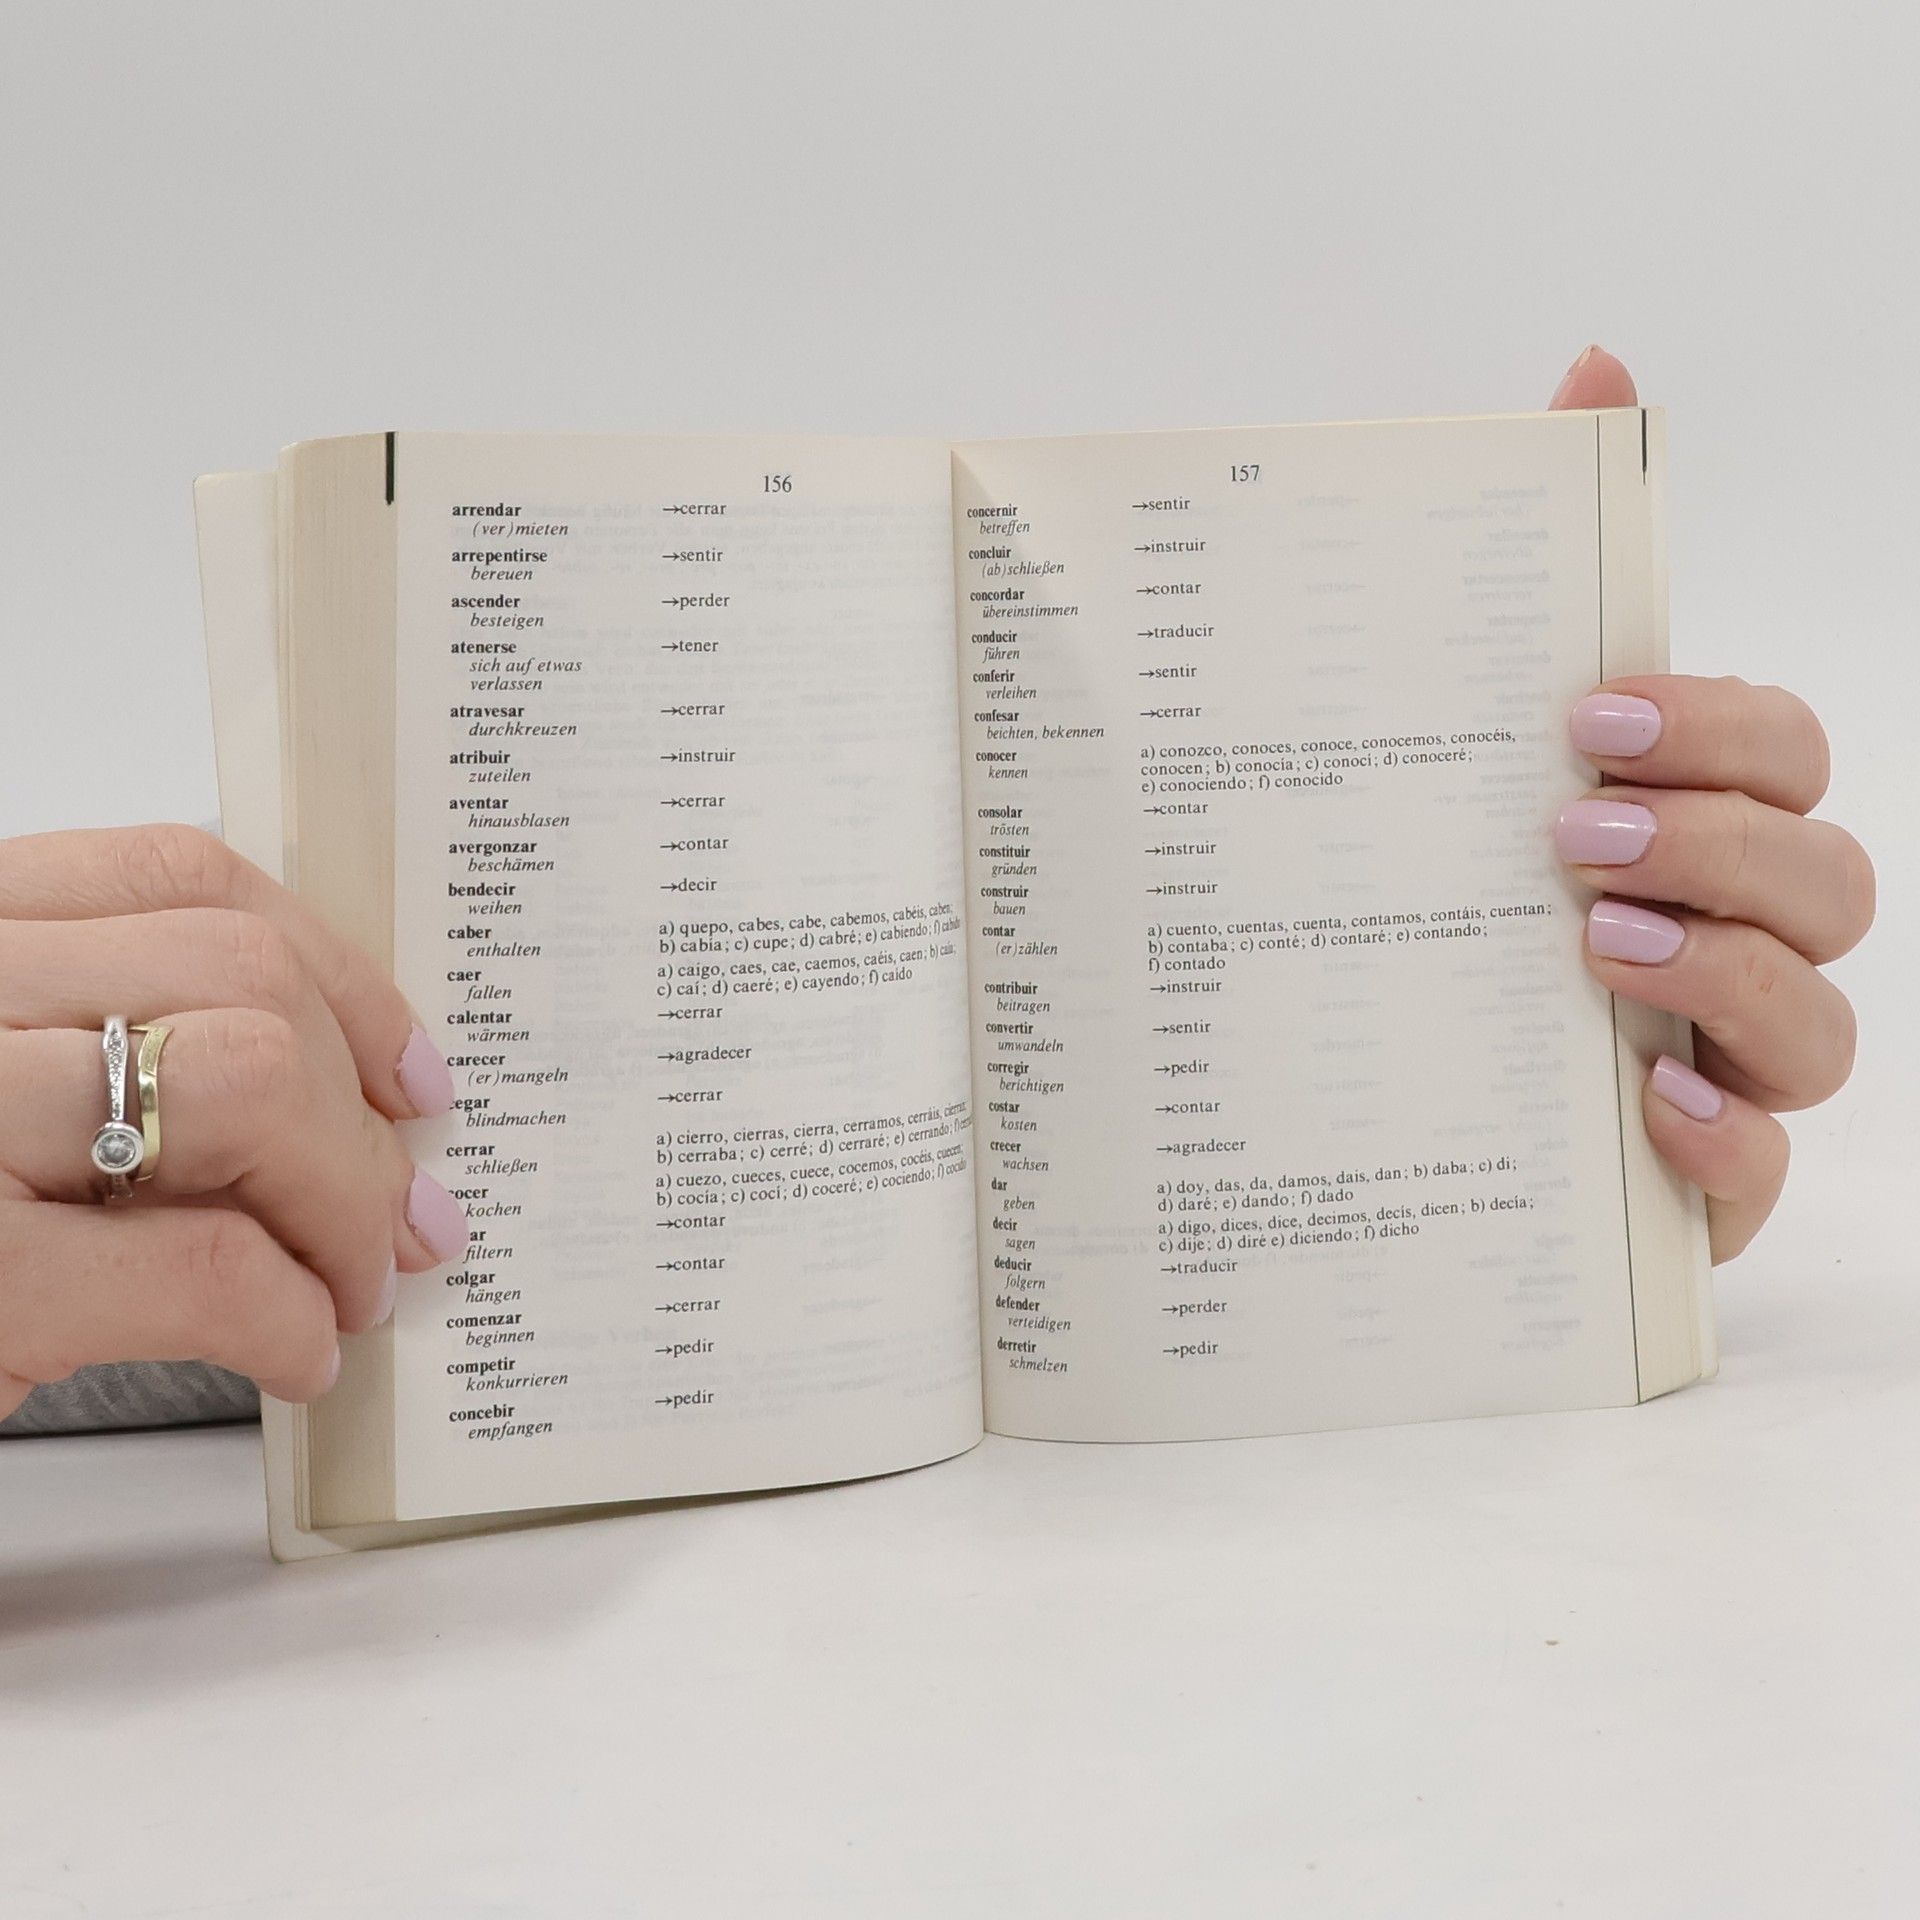 156
arrendar →cerrar
(ver)mieten
arrepentirse →sentir
bereuen
ascender →perder
besteigen
atenerse →tener
sich auf etwas
verlassen
atravesar →cerrar
durchkreuzen
atribuir →instruir
zuteilen
aventar →cerrar
hinausblasen
avergonzar →contar
beschämen
bendecir →decir
weihen
caber a) quepo, cabes, cabe, cabemos, cabéis, caben;
enthalten b) cabía; c) cupe; d) cabré; e) cabiendo; f) cabido
caer a) caigo, caes, cae, caemos, caéis, caen; b) caía;
fallen c) caí; d) caeré; e) cayendo; f) caído
calentar →cerrar
wärmen
carecer →agradecer
(er)mangeln
cegar →cerrar
blindmachen
cerrar a) cierro, cierras, cierra, cerramos, cerráis, cierran;
schließen b) cerraba; c) cerré; d) cerraré; e) cerrando;
cocer a) cuezo, cueces, cuece, cocemos, cocéis, cuecen;
kochen b) cocía; c) cocí; d) coceré; e) cociendo; f) cocido
ar →contar
filtern
colgar →contar
hängen
comenzar →cerrar
beginnen
competir →pedir
konkurrieren
concebir →pedir
empfangen
157
concernir →sentir
betreffen
concluir →instruir
(ab)schließen
concordar →contar
übereinstimmen
conducir →traducir
führen
conferir →sentir
verleihen
confesar →cerrar
beichten, bekennen
conocer a) conozco, conoces, conoce, conocemos, conocéis,
kennen conocen; b) conocía; c) conocí; d) conoceré;
e) conociendo; f) conocido
consolar →contar
trösten
constituir →instruir
gründen
construir →instruir
bauen
contar a) cuento, cuentas, cuenta, contamos, contáis, cuentan;
(er)zählen b) contaba; c) conté; d) contaré; e) contando;
f) contado
contribuir →instruir
beitragen
convertir →sentir
umwandeln
corregir →pedir
berichtigen
costar →contar
kosten
crecer →agradecer
wachsen
dar a) doy, das, da, damos, dais, dan; b) daba; c) di;
geben d) daré; e) dando; f) dado
decir a) digo, dices, dice, decimos, decís, dicen; b) decía;
sagen c) dije; d) diré e) diciendo; f) dicho
deducir →traducir
folgern
defender →perder
verteidigen
derretir →pedir
schmelzen